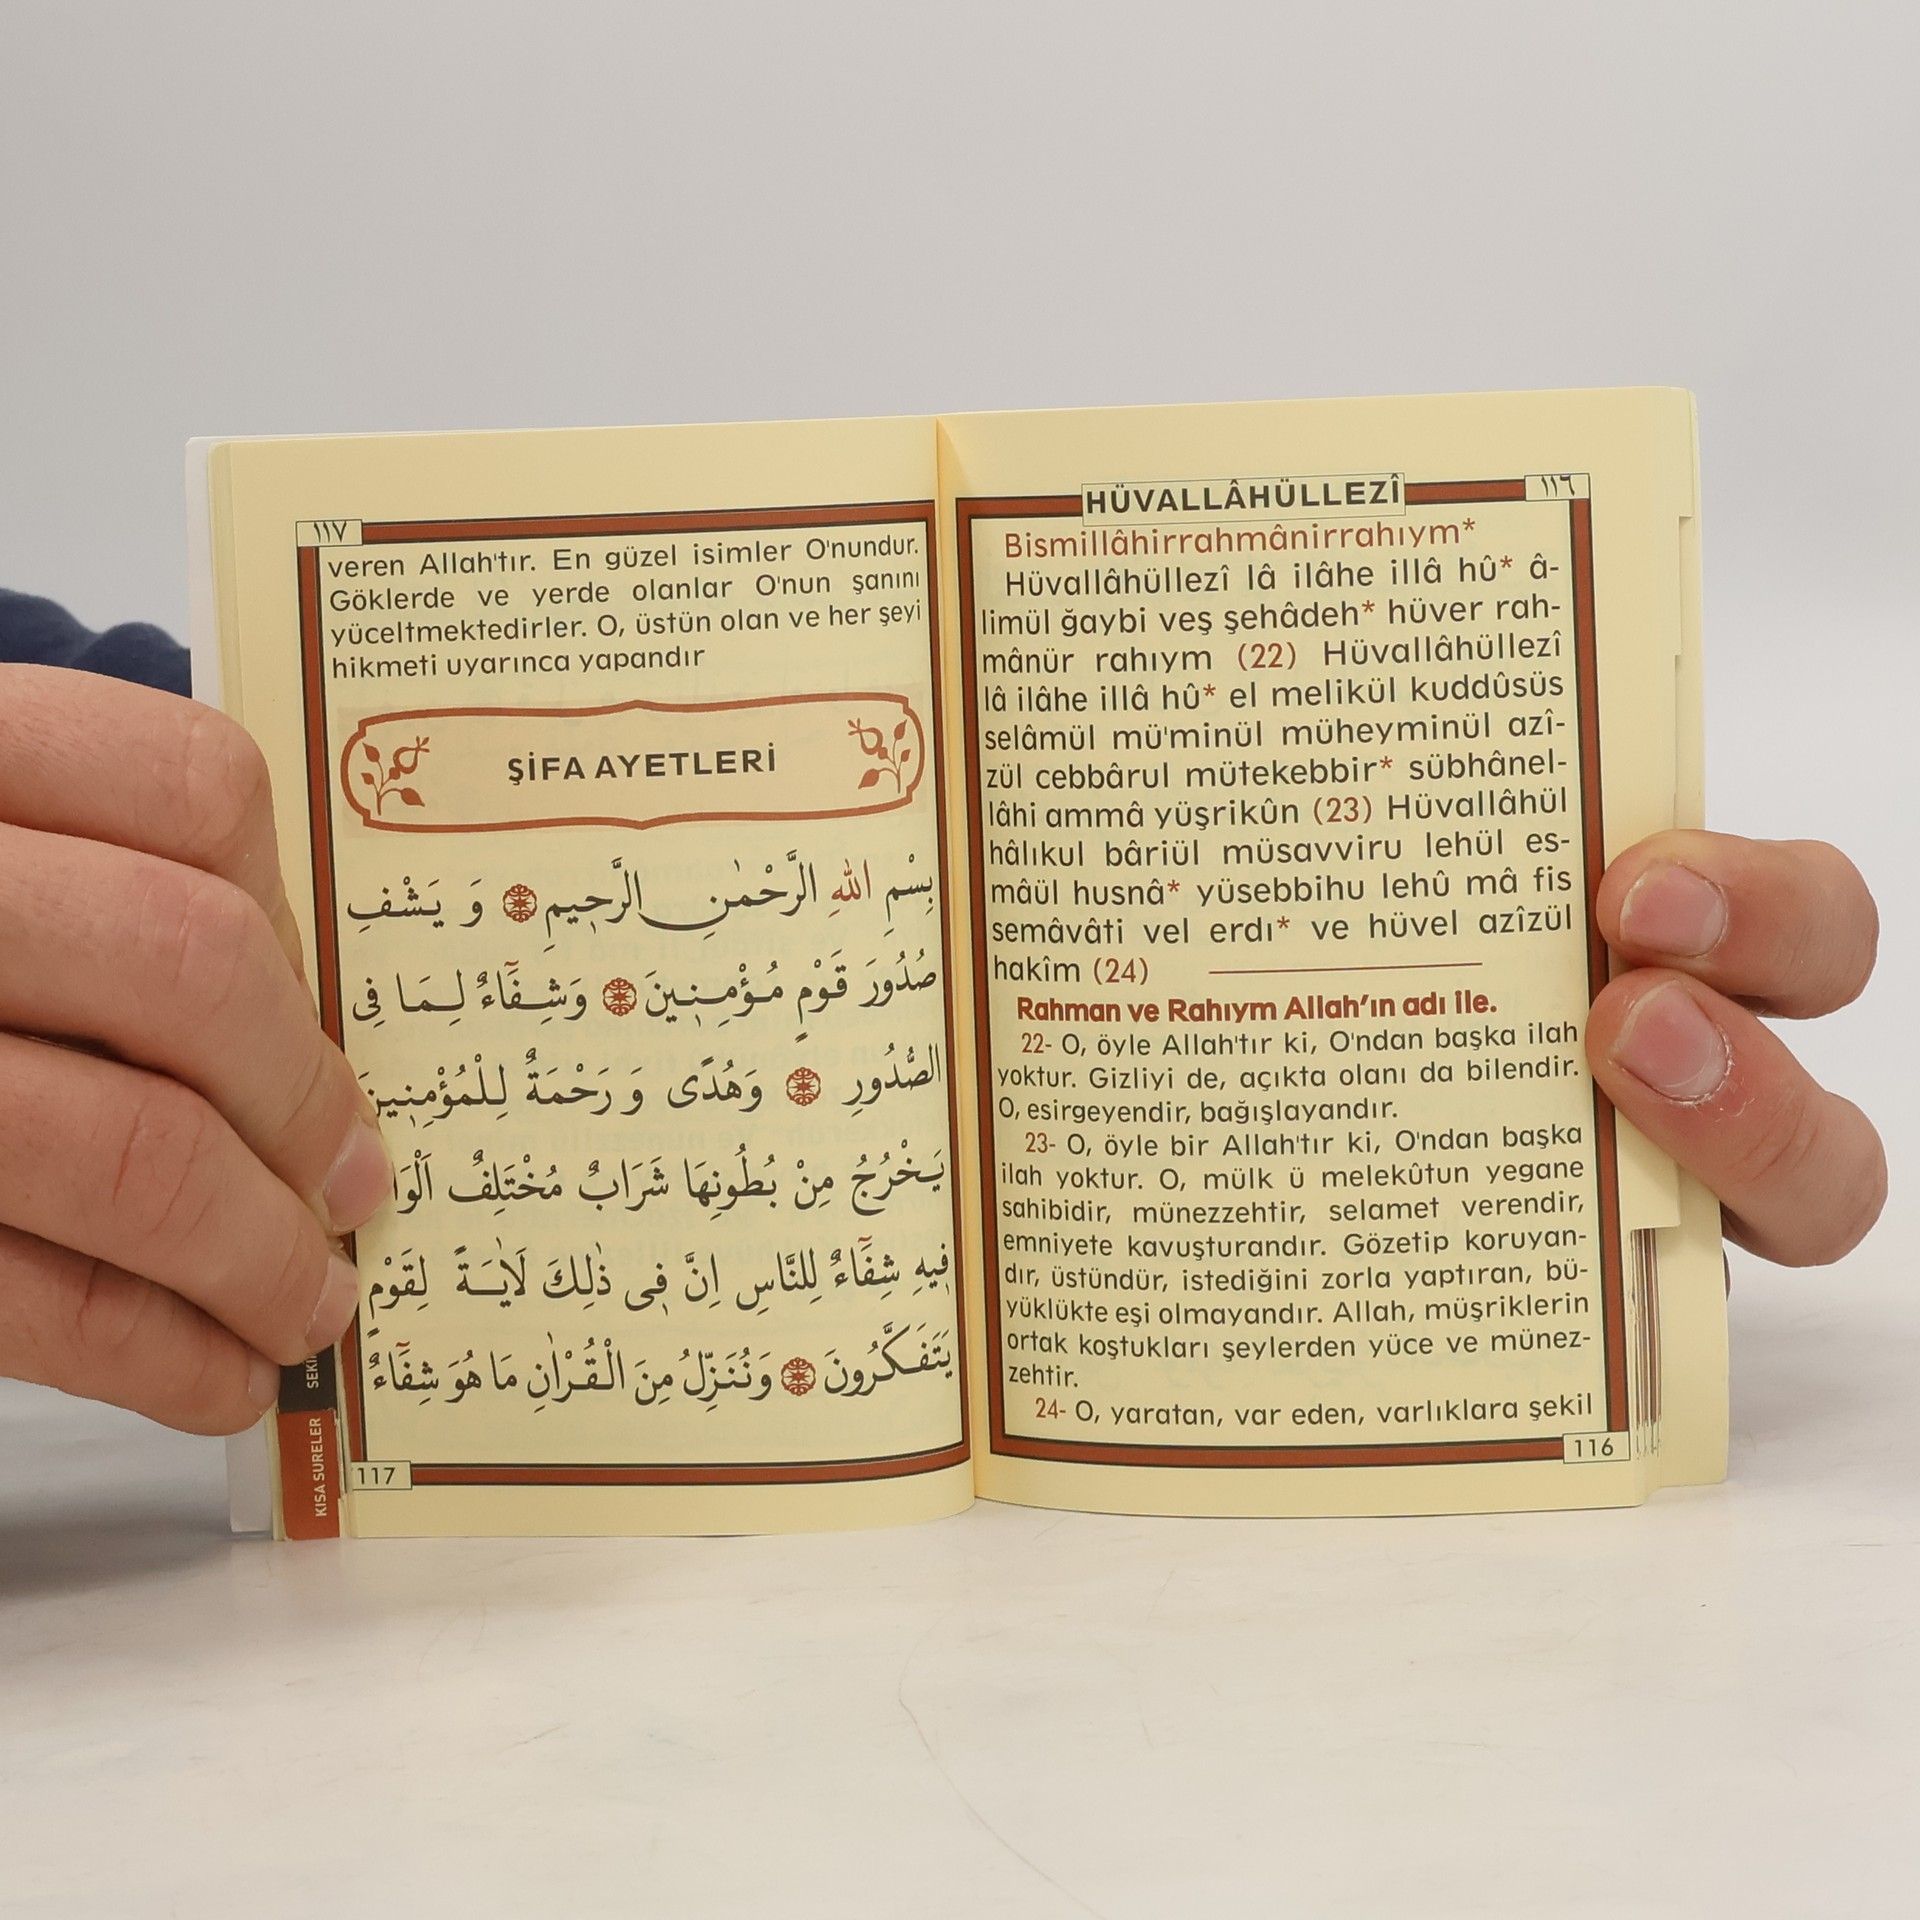 HÜVALLÂHÜLLEZÎ
١١٦
Bismillâhirrahmânirrahıym*
Hüvallâhüllezî lâ ilâhe illâ hû* â-
limül ğaybi veş şehâdeh* hüver rah-
mânür rahıym (22) Hüvallâhüllezî
lâ ilâhe illâ hû* el melikül kuddûsüs
selâmül mü'minül müheyminül azî-
zül cebbârul mütekebbir* sübhânel-
lâhi ammâ yüşrikûn (23) Hüvallâhül
hâlıkul bâriül müsavviru lehül es-
mâül husnâ* yüsebbihu lehû mâ fis
semâvâti vel erdı* ve hüvel azîzül
hakîm (24)
Rahman ve Rahıym Allah'ın adı ile.
22- O, öyle Allah'tır ki, O'ndan başka ilah
yoktur. Gizliyi de, açıkta olanı da bilendir.
O, esirgeyendir, bağışlayandır.
23- O, öyle bir Allah'tır ki, O'ndan başka
ilah yoktur. O, mülk ü melekûtun yegane
sahibidir, münezzehtir, selamet verendir,
emniyete kavuşturandır. Gözetip koruyan-
dır, üstündür, istediğini zorla yaptıran, bü-
yüklükte eşi olmayandır. Allah, müşriklerin
ortak koştukları şeylerden yüce ve münez-
zehtir.
24- O, yaratan, var eden, varlıklara şekil
116
١١٧
veren Allah'tır. En güzel isimler O'nundur.
Göklerde ve yerde olanlar O'nun şanını
yüceltmektedirler. O, üstün olan ve her şeyi
hikmeti uyarınca yapandır
ŞİFA AYETLERİ
بِسْمِ اللهِ الرَّحْمٰنِ الرَّحِيمِ ۞ وَ يَشْفِ
صُدُورَ قَوْمٍ مُؤْمِنِينَ ۞ وَشِفَٓاءٌ لِمَا فِى
الصُّدُورِ ۞ وَهُدًى وَ رَحْمَةٌ لِلْمُؤْمِنِينَ
يَخْرُجُ مِنْ بُطُونِهَا شَرَابٌ مُخْتَلِفٌ
فِيهِ شِفَٓاءٌ لِلنَّاسِ اِنَّ فِى ذٰلِكَ لَاٰيَةً لِقَوْمٍ
يَتَفَكَّرُونَ ۞ وَنُنَزِّلُ مِنَ الْقُرْاٰنِ مَا هُوَ شِفَٓاءٌ
117
KISA SURELER